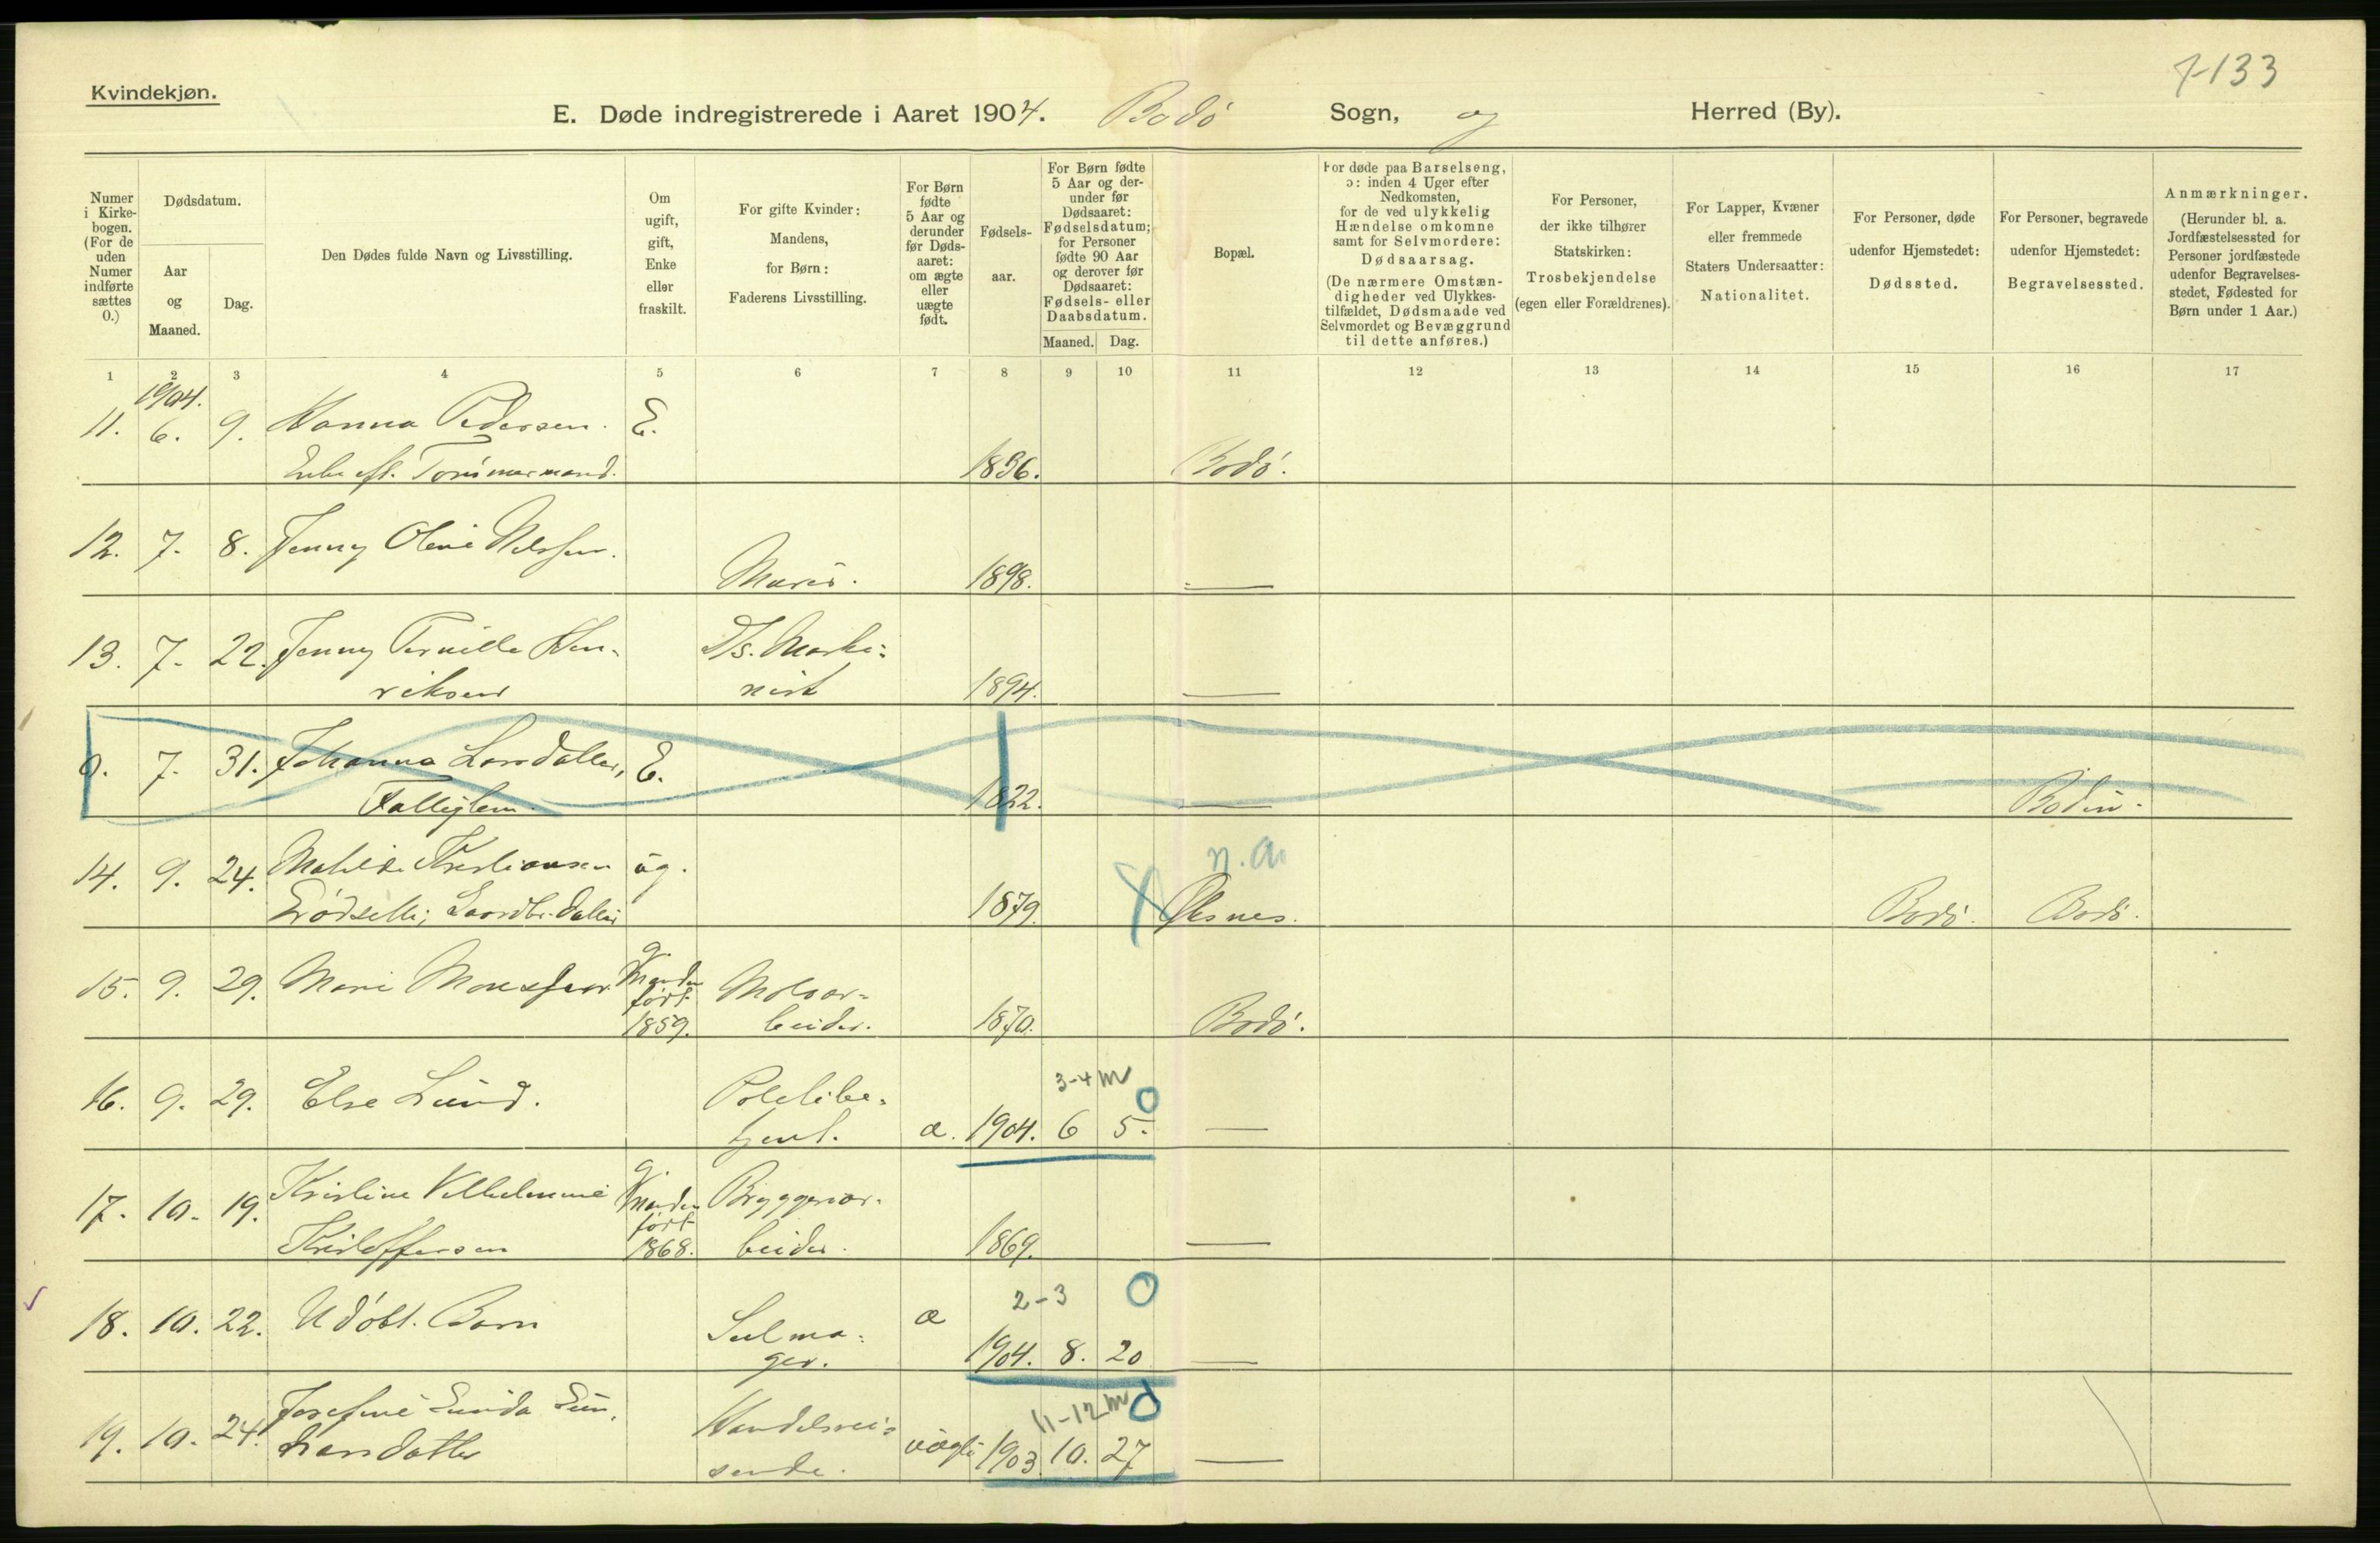 7-133
Kvindekjøn.
E. Døde indregistrerede i Aaret 1904. Bodø Sogn, og Herred (By).
Numer i Kirke-bogen. (For de uden Numer indførte sættes 0.)
Dødsdatum.
Aar og Maaned.
Dag.
Den Dødes fulde Navn og Livsstilling.
Om ugift, gift, Enke eller fraskilt.
For gifte Kvinder: Mandens, for Børn: Faderens Livsstilling.
For Børn fødte 5 Aar og derunder før Døds-aaret: om ægte eller uægte født.
Fødsels-aar.
For Børn fødte 5 Aar og der-under før Dødsaaret: Fødselsdatum; for Personer fødte 90 Aar og derover før Dødsaaret: Fødsels- eller Daabsdatum.
Maaned. Dag.
Bopæl.
For døde paa Barselseng, ɔ: inden 4 Uger efter Nedkomsten, for de ved ulykkelig Hændelse omkomne samt for Selvmordere: Dødsaarsag. (De nærmere Omstæn-digheder ved Ulykkes-tilfældet, Dødsmaade ved Selvmordet og Bevæggrund til dette anføres.)
For Personer, der ikke tilhører Statskirken: Trosbekjendelse (egen eller Forældrenes).
For Lapper, Kvæner eller fremmede Staters Undersaatter: Nationalitet.
For Personer, døde udenfor Hjemstedet: Dødssted.
For Personer, begravede udenfor Hjemstedet: Begravelsessted.
Anmærkninger. (Herunder bl. a. Jordfæstelsessted for Personer jordfæstede udenfor Begravelses-stedet, Fødested for Børn under 1 Aar.)
1 2 3 4 5 6 7 8 9 10 11 12 13 14 15 16 17
1904.
11. 6. 9. Hanna Pedersen. E.
Enke eft. Tømmermand. 1836. Bodø.
12. 7. 8. Jenny Oline Nilsen.
1898. —
13. 7. 22. Jenny Pernille Hen- Ds. Maski-
riksen nist 1894. —
0. 7. 31. Johanna Larsdatter, E.
Fattiglem. 1822. — Bodin.
14. 9. 24. Kristiansen ug. n. a.
1879. X Øksnes. Bodø. Bodø.
15. 9. 29. Marie g. Manden født 1859. beider. 1870. Bodø.
16. 9. 29. Else Lund. Politibe- 3-4 m 0
tjent. æ. 1904. 6 5. —
17. 10. 19. Kristine Vilhelmine g. Manden født 1868. Bryggeriar-
Kristoffersen beider. 1869. —
18. 10. 22. Udøbt. Barn æ 2-3 0
Seilma-
ger. 1904. 8. 20 —
19. 10. 24. Josefine Handelsrei- 11-12 m 0
Larsdatter sende. uægte 1903. 10. 27 —